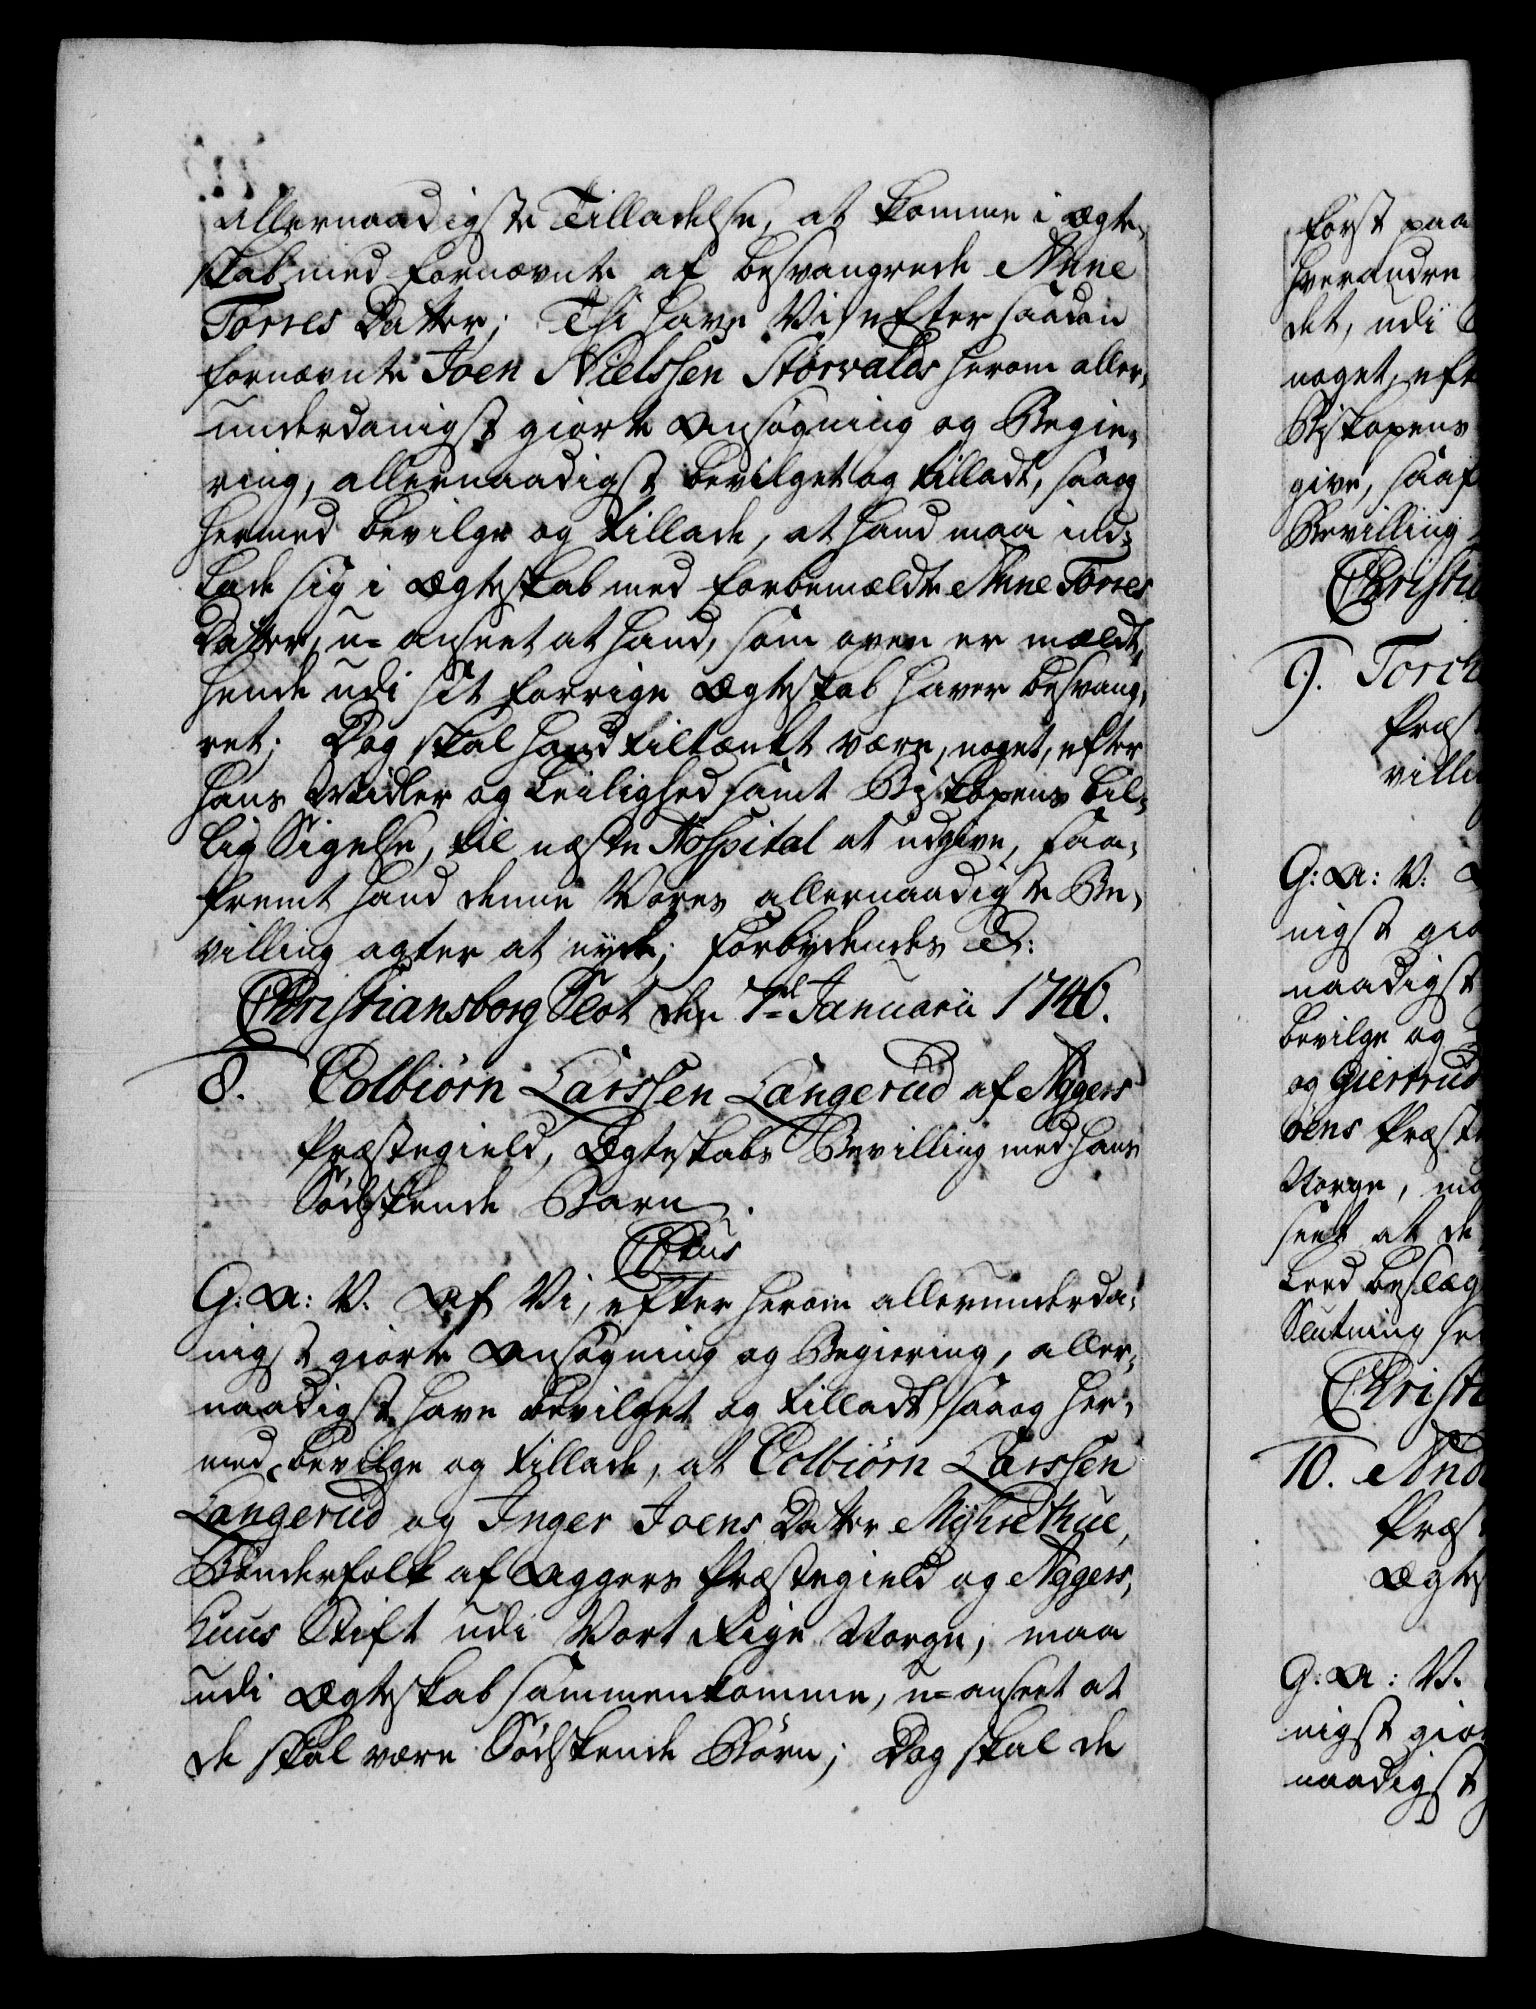 allernaadigste Tilladelse, at komme i Ægte-
skab med fornævnte af besvangrede Anne
Torres Datter; Thi have Vi efter saadan
fornævnte Joen Nielssen Størvalds herom aller-
underdanigst giorte Ansøgning og Begie-
ring, allernaadigst bevilget og tilladt, saa og
hermed bevilge og tillade, at hand maa ind-
lade sig i Ægteskab med forbemældte Anne Torres
Datter, u-anseet at hand, som oven er mældt,
hende udi sit forrige Ægteskab haver besvang-
ret; Dog skal hand tiltænkt være, noget, efter
hans Midler og Leilighed samt Biskopens bil-
lig Sigelse, til næste Hospital at udgive, saa-
fremt hand denne Vores allernaadigste Be-
villing agter at nyde; Forbydendes &:
Christiansborg Slot den 7de Januarii 1746.
8. Colbiørn Larssen Langerud af Aggers
Præstegield, Ægteskabs Bevilling med hans
Sødskende Barn.
C 6tus
G: A: V. At Vi, efter herom allerunderda-
nigst giorte Ansøgning og Begiering, aller-
naadigst have bevilget og tilladt, saa og her-
med bevilge og tillade, at Colbiørn Larssen
Langerud og Inger Joens Datter Myhrethue,
Bønderfolk af Aggers Præstegield og Aggers-
huus Stift udi Vort Rige Norge, maa
udi Ægteskab sammenkomme, u-anseet at
de skal være Sødskende Børn; Dog skal de
først paa
hverandre
det, udi
noget, eft
Biskopens
give, saaf
Bevilling
Christi
9. Torch
Præst
villi
G: A: V:
nigst gio
naadigst
bevilge og
og Giertrud
øens Præste
Norge, ma
seet at de
Leed beslæg
Slutning se
Christi
10. And
Præst
Ægtes
G: A: V.
nigst gior
naadigst